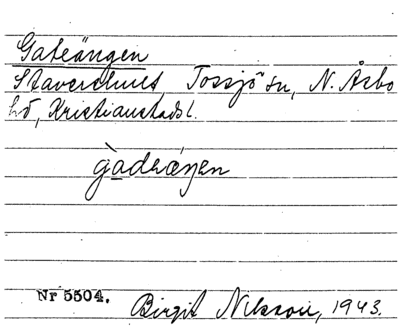 Gateängen
Stavershult, Tossjö sn, N. Åsbo
hd, Kristianstads l.
gàdhǽŋen
Nr 5504. Birgit Nilsson, 1943.